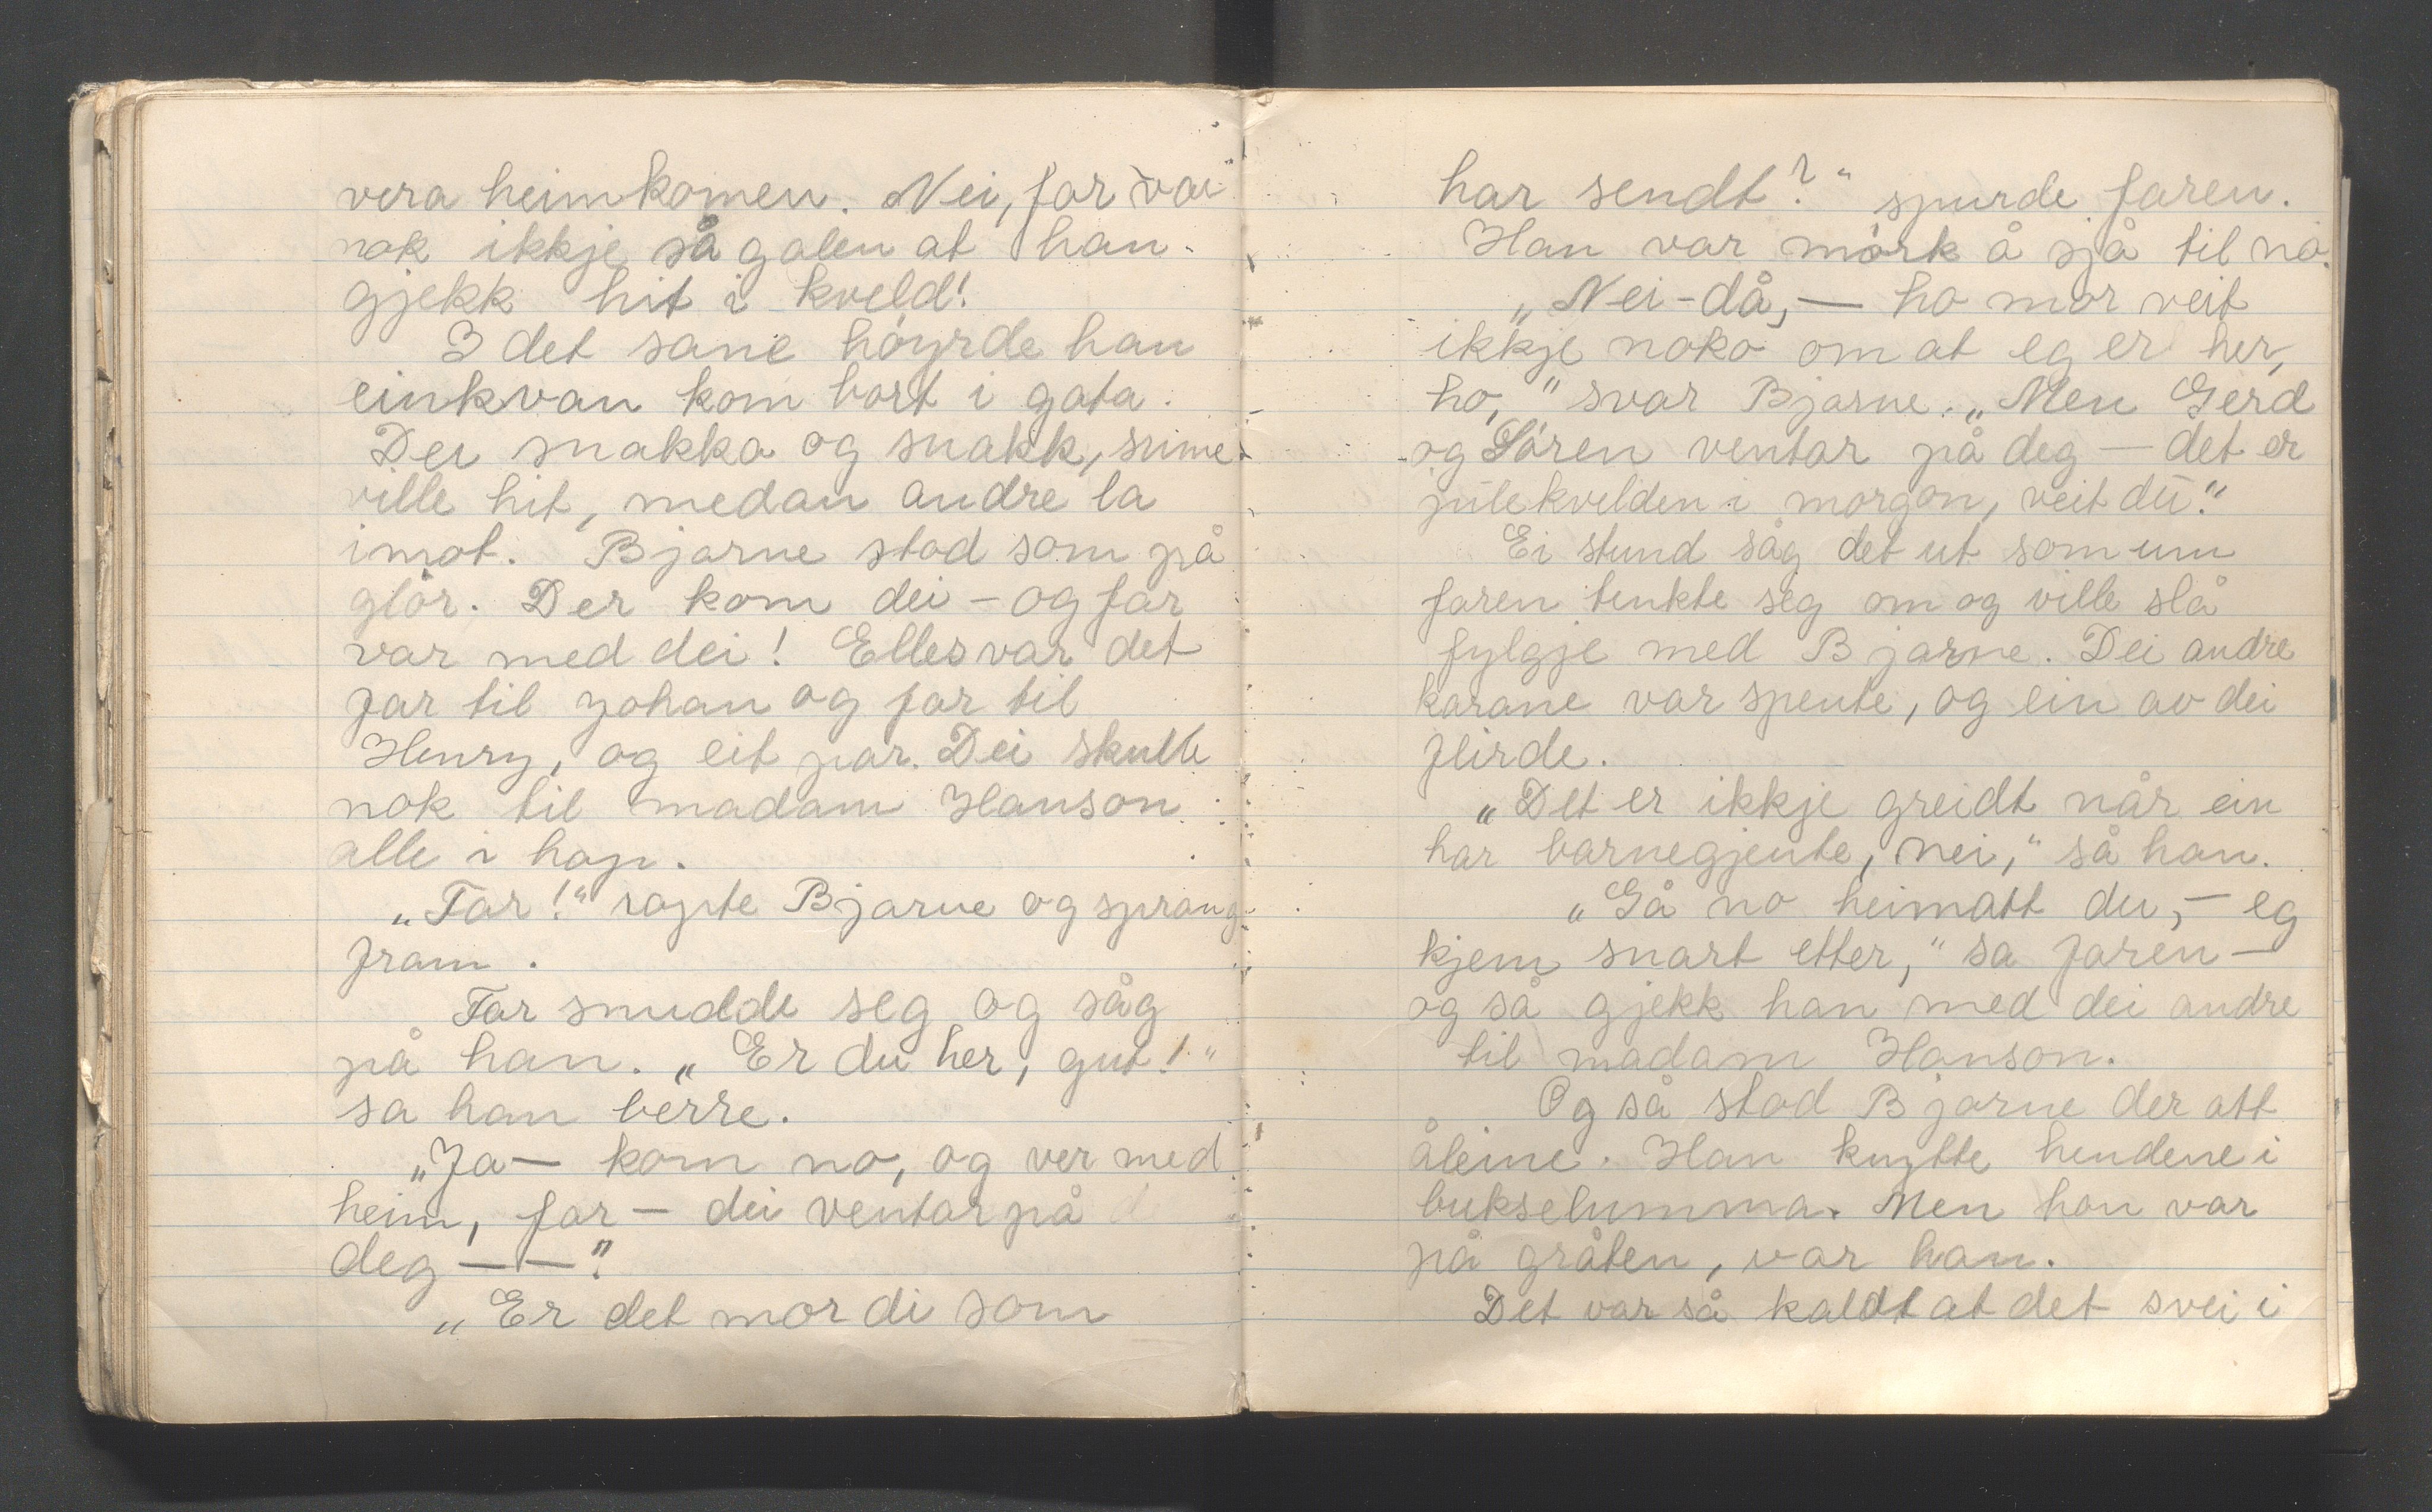 vera heimkomen. Nei, far var
nok ikkje så galen at han
gjekk hit i kveld!
I det same høyrde han
einkvan kom bort i gata.
Dei snakka og snakk, sume
ville hit, medan andre la
imot. Bjarne stod som på
glör. Der kom dei – og far
var med dei! Elles var det
far til Johan og far til
Henry, og eit par. Dei skulle
nok til madam Hanson
alle i hop.
„Far!“ ropte Bjarne og sprang
fram.
Far snudde seg og såg
på han. „Er du her, gut!“
sa han berre.
„Ja – kom no, og ver med
heim, far – dei ventar på
deg – – .“
„Er det mor di som
har sendt?“ spurde faren.
Han var mörk å sjå til no.
„Nei-då, – ho mor veit
ikkje noko om at eg er her,
ho,“ svar Bjarne. „Men Gerd
og Sören ventar på deg – det er
julekvelden i morgon, veit du.“
Ei stund såg det ut som um
faren tenkte seg om og ville slå
fylgje med Bjarne. Dei andre
karane var spente, og ein av dei
flirde.
„Det er ikkje greidt når ein
har barnegjente, nei,“ så han.
„Gå no heimatt du, – eg
kjem snart etter,“ sa faren –
og så gjekk han med dei andre
til madam Hanson.
Og så stod Bjarne der att
åleine. Han knytte hendene i
bukselumma. Men han var
på gråten, var han.
Det var så kaldt at det svei i